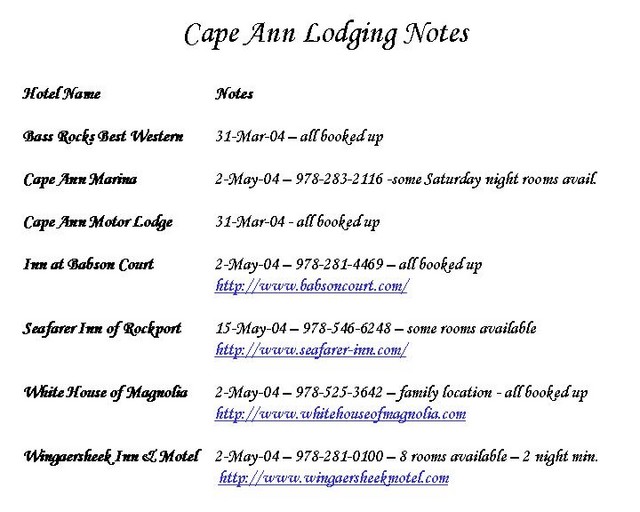 Cape Ann Lodging Notes
Hotel Name Notes
Bass Rocks Best Western 31-Mar-04 – all booked up
Cape Ann Marina 2-May-04 – 978-283-2116 -some Saturday night rooms avail.
Cape Ann Motor Lodge 31-Mar-04 - all booked up
Inn at Babson Court 2-May-04 – 978-281-4469 – all booked up
http://www.babsoncourt.com/
Seafarer Inn of Rockport 15-May-04 – 978-546-6248 – some rooms available
http://www.seafarer-inn.com/
White House of Magnolia 2-May-04 – 978-525-3642 – family location - all booked up
http://www.whitehouseofmagnolia.com
Wingaersheek Inn & Motel 2-May-04 – 978-281-0100 – 8 rooms available – 2 night min.
http://www.wingaersheekmotel.com